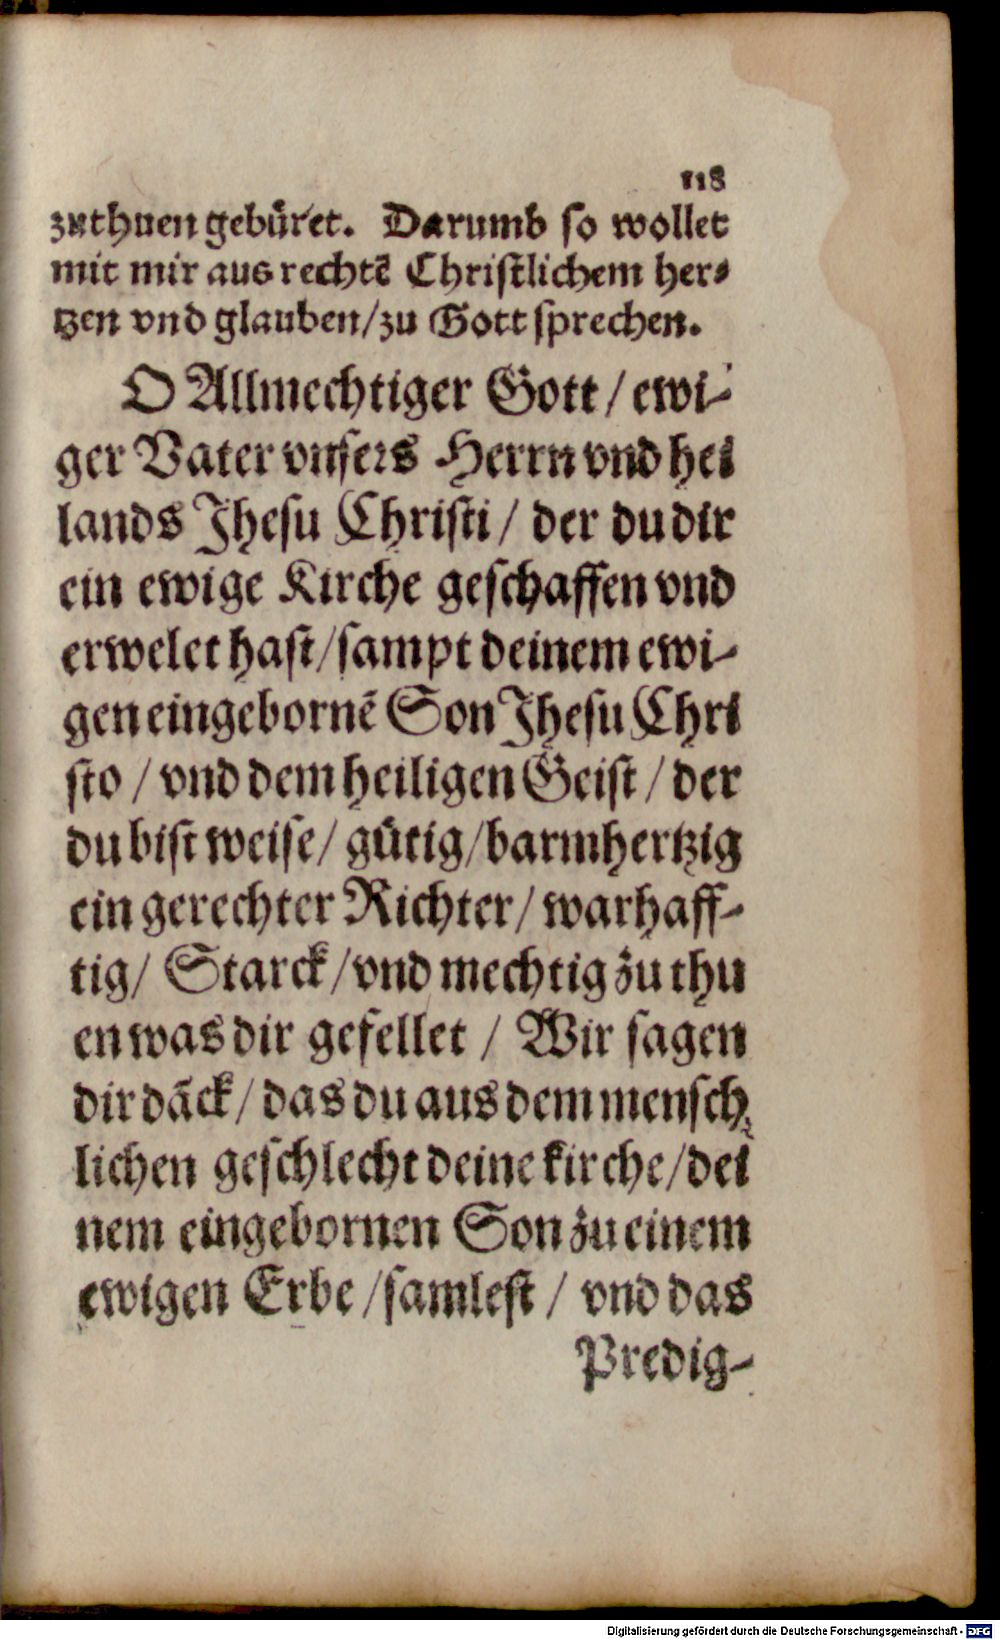 118
zuthuen gebüret. Darumb so wollet
mit mir aus rechtē Christlichem her⸗
tzen vnd glauben/zu Gott sprechen.
O Allmechtiger Gott / ewi⸗
ger Vater vnsers Herrn vnd hei
lands Jhesu Christi / der du dir
ein ewige Kirche geschaffen vnd
erwelet hast/sampt deinem ewi⸗
gen eingebornē Son Jhesu Chri
sto / vnd dem heiligen Geist / der
du bist weise/ gütig/barmhertzig
ein gerechter Richter/ warhaff⸗
tig/ Starck /vnd mechtig zu thu
en was dir gefellet / Wir sagen
dir dāck/ das du aus dem mensch
lichen geschlecht deine kirche/dei
nem eingebornen Son zu einem
ewigen Erbe /samlest / vnd das
Predig⸗
Digitalisierung gefördert durch die Deutsche Forschungsgemeinschaft - DFG